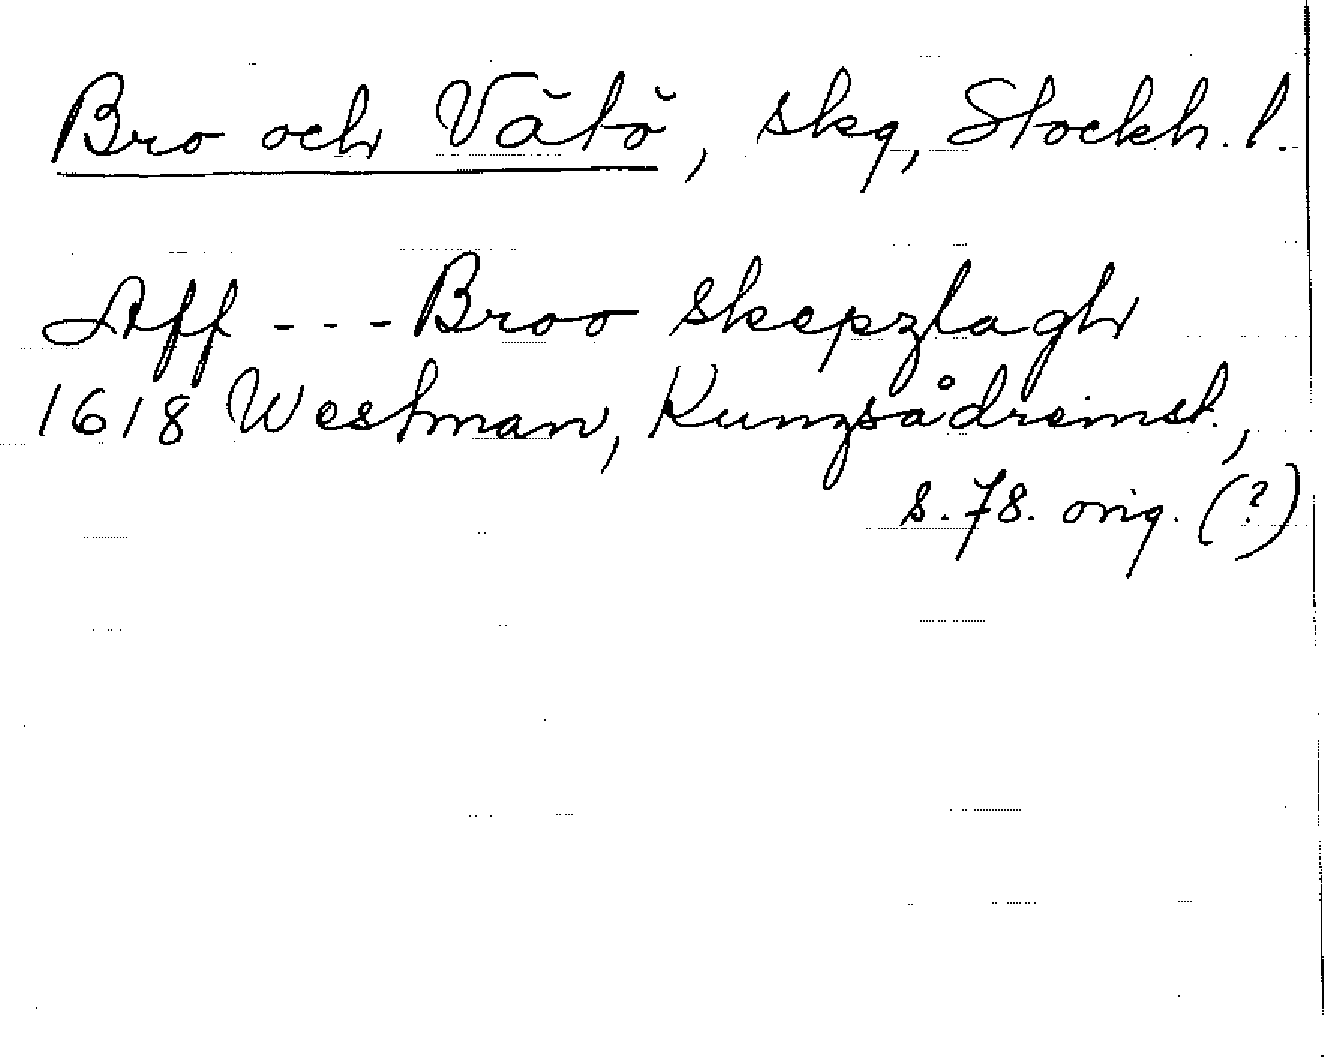 Bro och Vätö, skg, Stockh. l.
Aff --- Broo skepzlagh
1618 Westman, Kungsådreinst.,
s. 78. orig. (?)